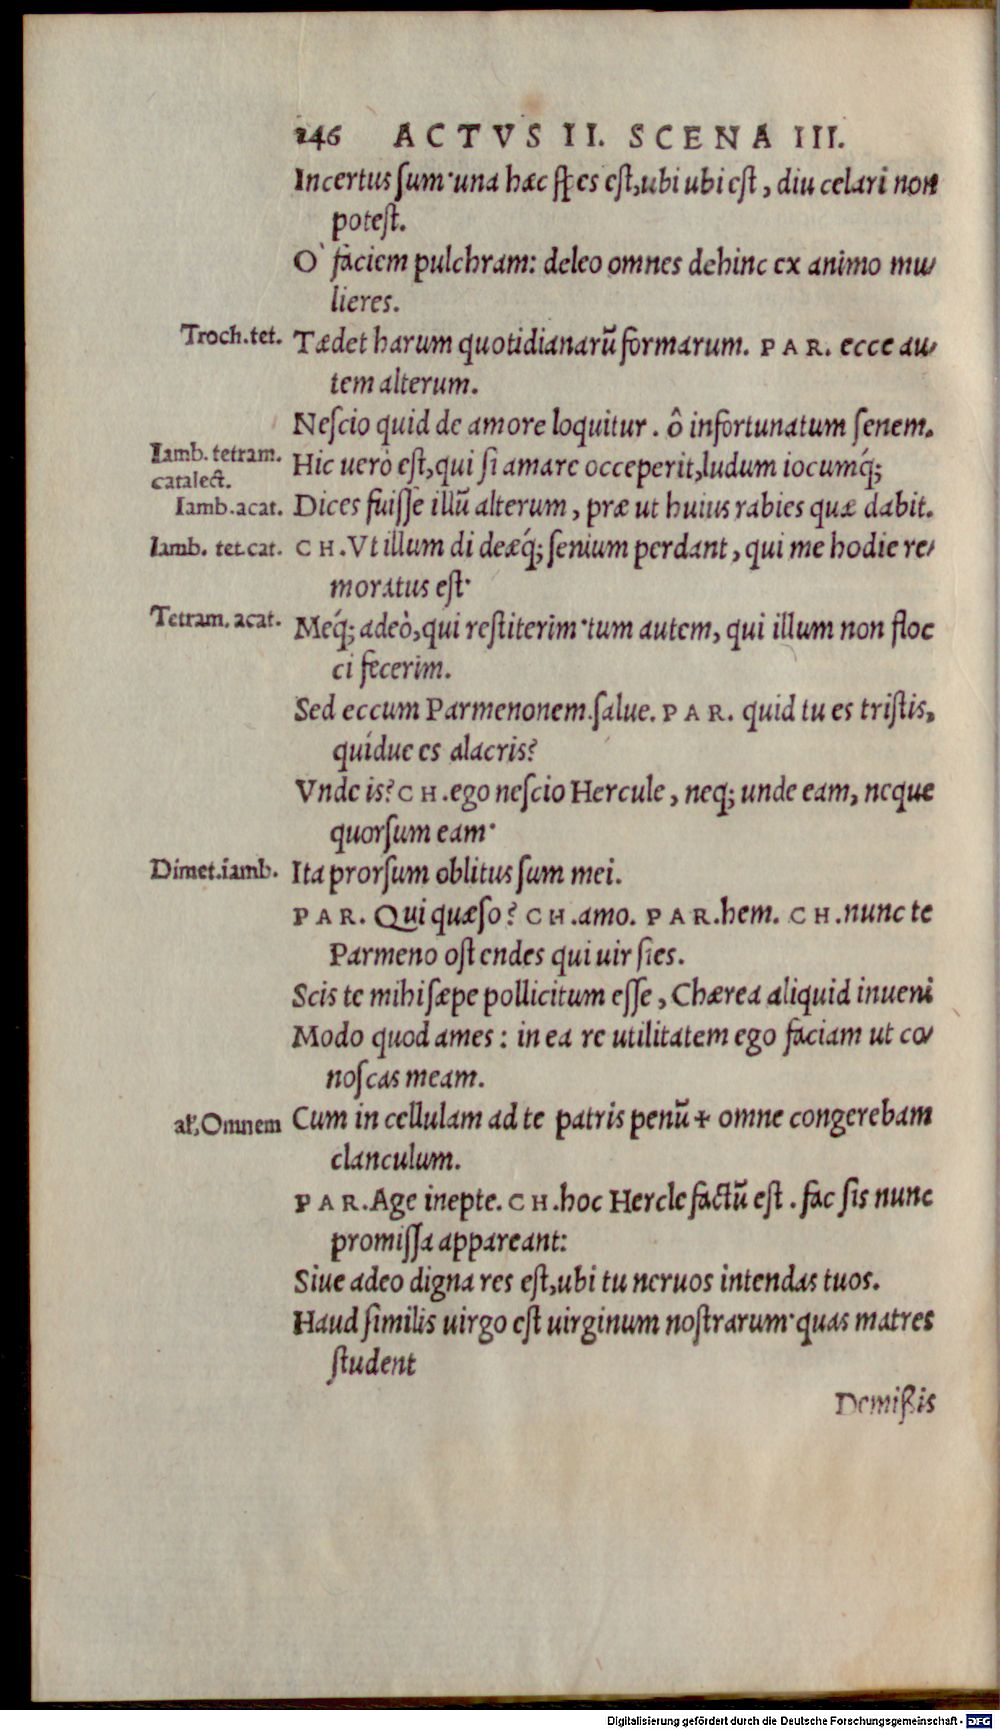 146 ACTVS II. SCENA III.
Incertus ſum·una hæc ſpes eſt,ubi ubi eſt, diu celari non
poteſt.
O` faciem pulchram: deleo omnes dehinc ex animo mu-
lieres.
Troch.tet. Tædet harum quotidianarũ formarum. PAR. ecce au-
tem alterum.
Neſcio quid de amore loquitur. ô infortunatum ſenem.
Iamb. tetram.
catalect. Hic uerò eſt,qui ſi amare occeperit,ludum iocumq́;
Iamb.acat. Dices fuiſſe illũ alterum, præ ut huius rabies quæ dabit.
Iamb. tet.cat. CH.Vt illum di deæq́; ſenium perdant, qui me hodie re-
moratus eſt·
Tetram. acat. Meq́; adeò,qui reſtiterim·tum autem, qui illum non floc
ci fecerim.
Sed eccum Parmenonem.ſalue. PAR. quid tu es triſtis,
quídue es alacris?
Vnde is? CH.ego neſcio Hercule, neq; unde eam, neque
quorſum eam·
Dimet.iamb. Ita prorſum oblitus ſum mei.
PAR. Qui quæſo? CH.amo. PAR.hem. CH.nunc te
Parmeno oſtendes qui uir ſies.
Scis te mihi ſæpe pollicitum eſſe, Chærea aliquid inueni
Modo quod ames: in ea re utilitatem ego faciam ut co-
noſcas meam.
al',Omnem Cum in cellulam ad te patris penũ + omne congerebam
clanculum.
PAR.Age inepte. CH.hoc Hercle factũ eſt. fac ſis nunc
promiſſa appareant:
Siue adeo digna res eſt,ubi tu neruos intendas tuos.
Haud ſimilis uirgo eſt uirginum noſtrarum·quas matres
ſtudent
Demißis
Digitalisierung gefördert durch die Deutsche Forschungsgemeinschaft - DFG